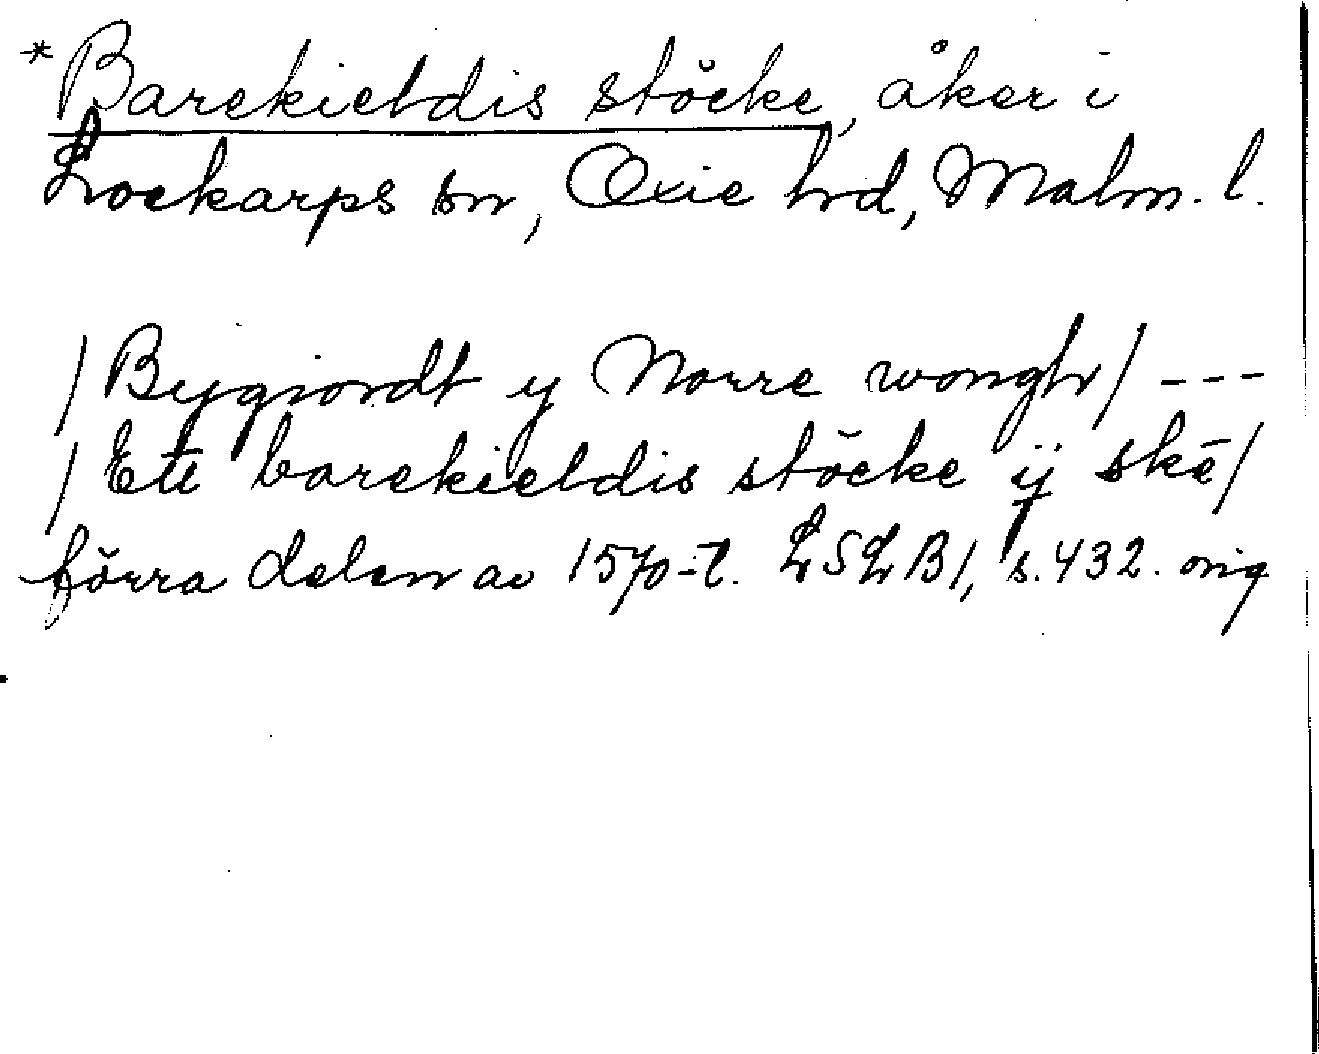 *Barekieldis stöcke, åker i
Lockarps sn, Oxie hd, Malm. l.
/Bygiordt y Norre wongh/ ---
/Ett barekieldis stöcke ÿ skē/
förra delen av 1570-t. LSLB1, s. 432. orig